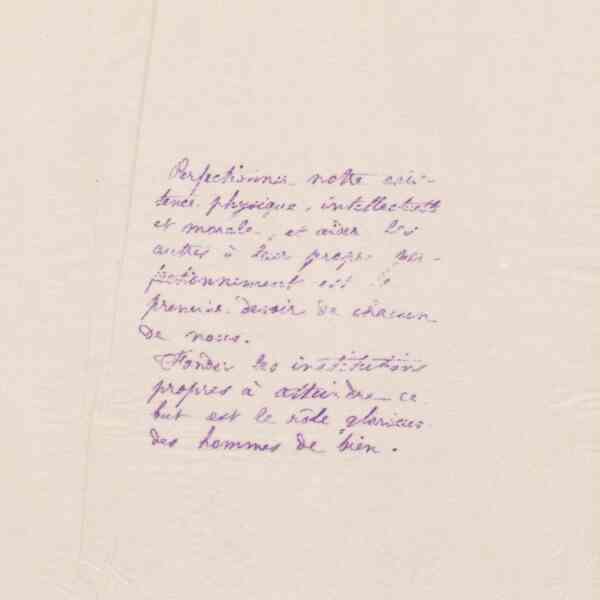 Perfectionner notre exis-
tence physique, intellectuelle
et morale, et aider les
autres à leur propre per-
fectionnement est le
premier devoir de chacun
de nous.
Fonder les institutions
propres à atteindre ce
but est le rôle glorieux
des hommes de bien.